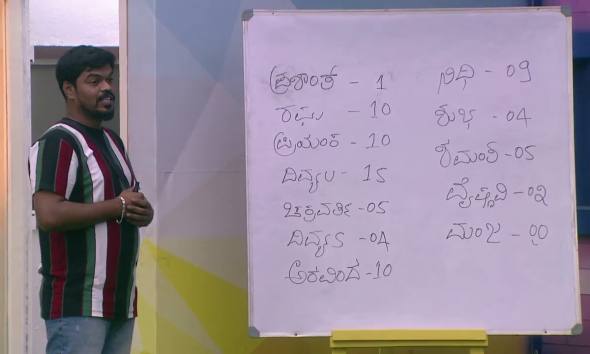 ಪ್ರಶಾಂತ್ - 1
ರಘು - 10
ಪ್ರಿಯಾಂಕ - 10
ದಿವ್ಯ U - 15
ಚಕ್ರವರ್ತಿ - 05
ದಿವ್ಯ S - 04
ಅರವಿಂದ - 10
ನಿಧಿ - 09
ಶುಭ - 04
ಶಮಂತ್ - 05
ವೈಷ್ಣವಿ - 02
ಮಂಜು - 00